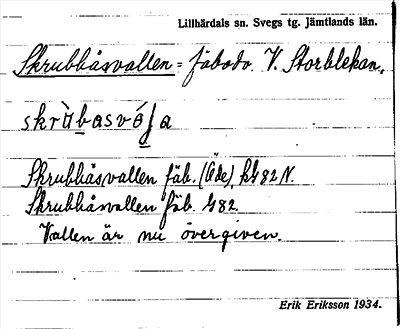 Lillhärdals sn. Svegs tg. Jämtlands län.
Skrubbåsvallen = fäbodv. V. Storblekan.
Skrubbåsvallen fäb. (Öde), kt 82 N.
Skrubbåsvallen fäb. 482.
Vallen är nu övergiven.
Erik Eriksson 1934.